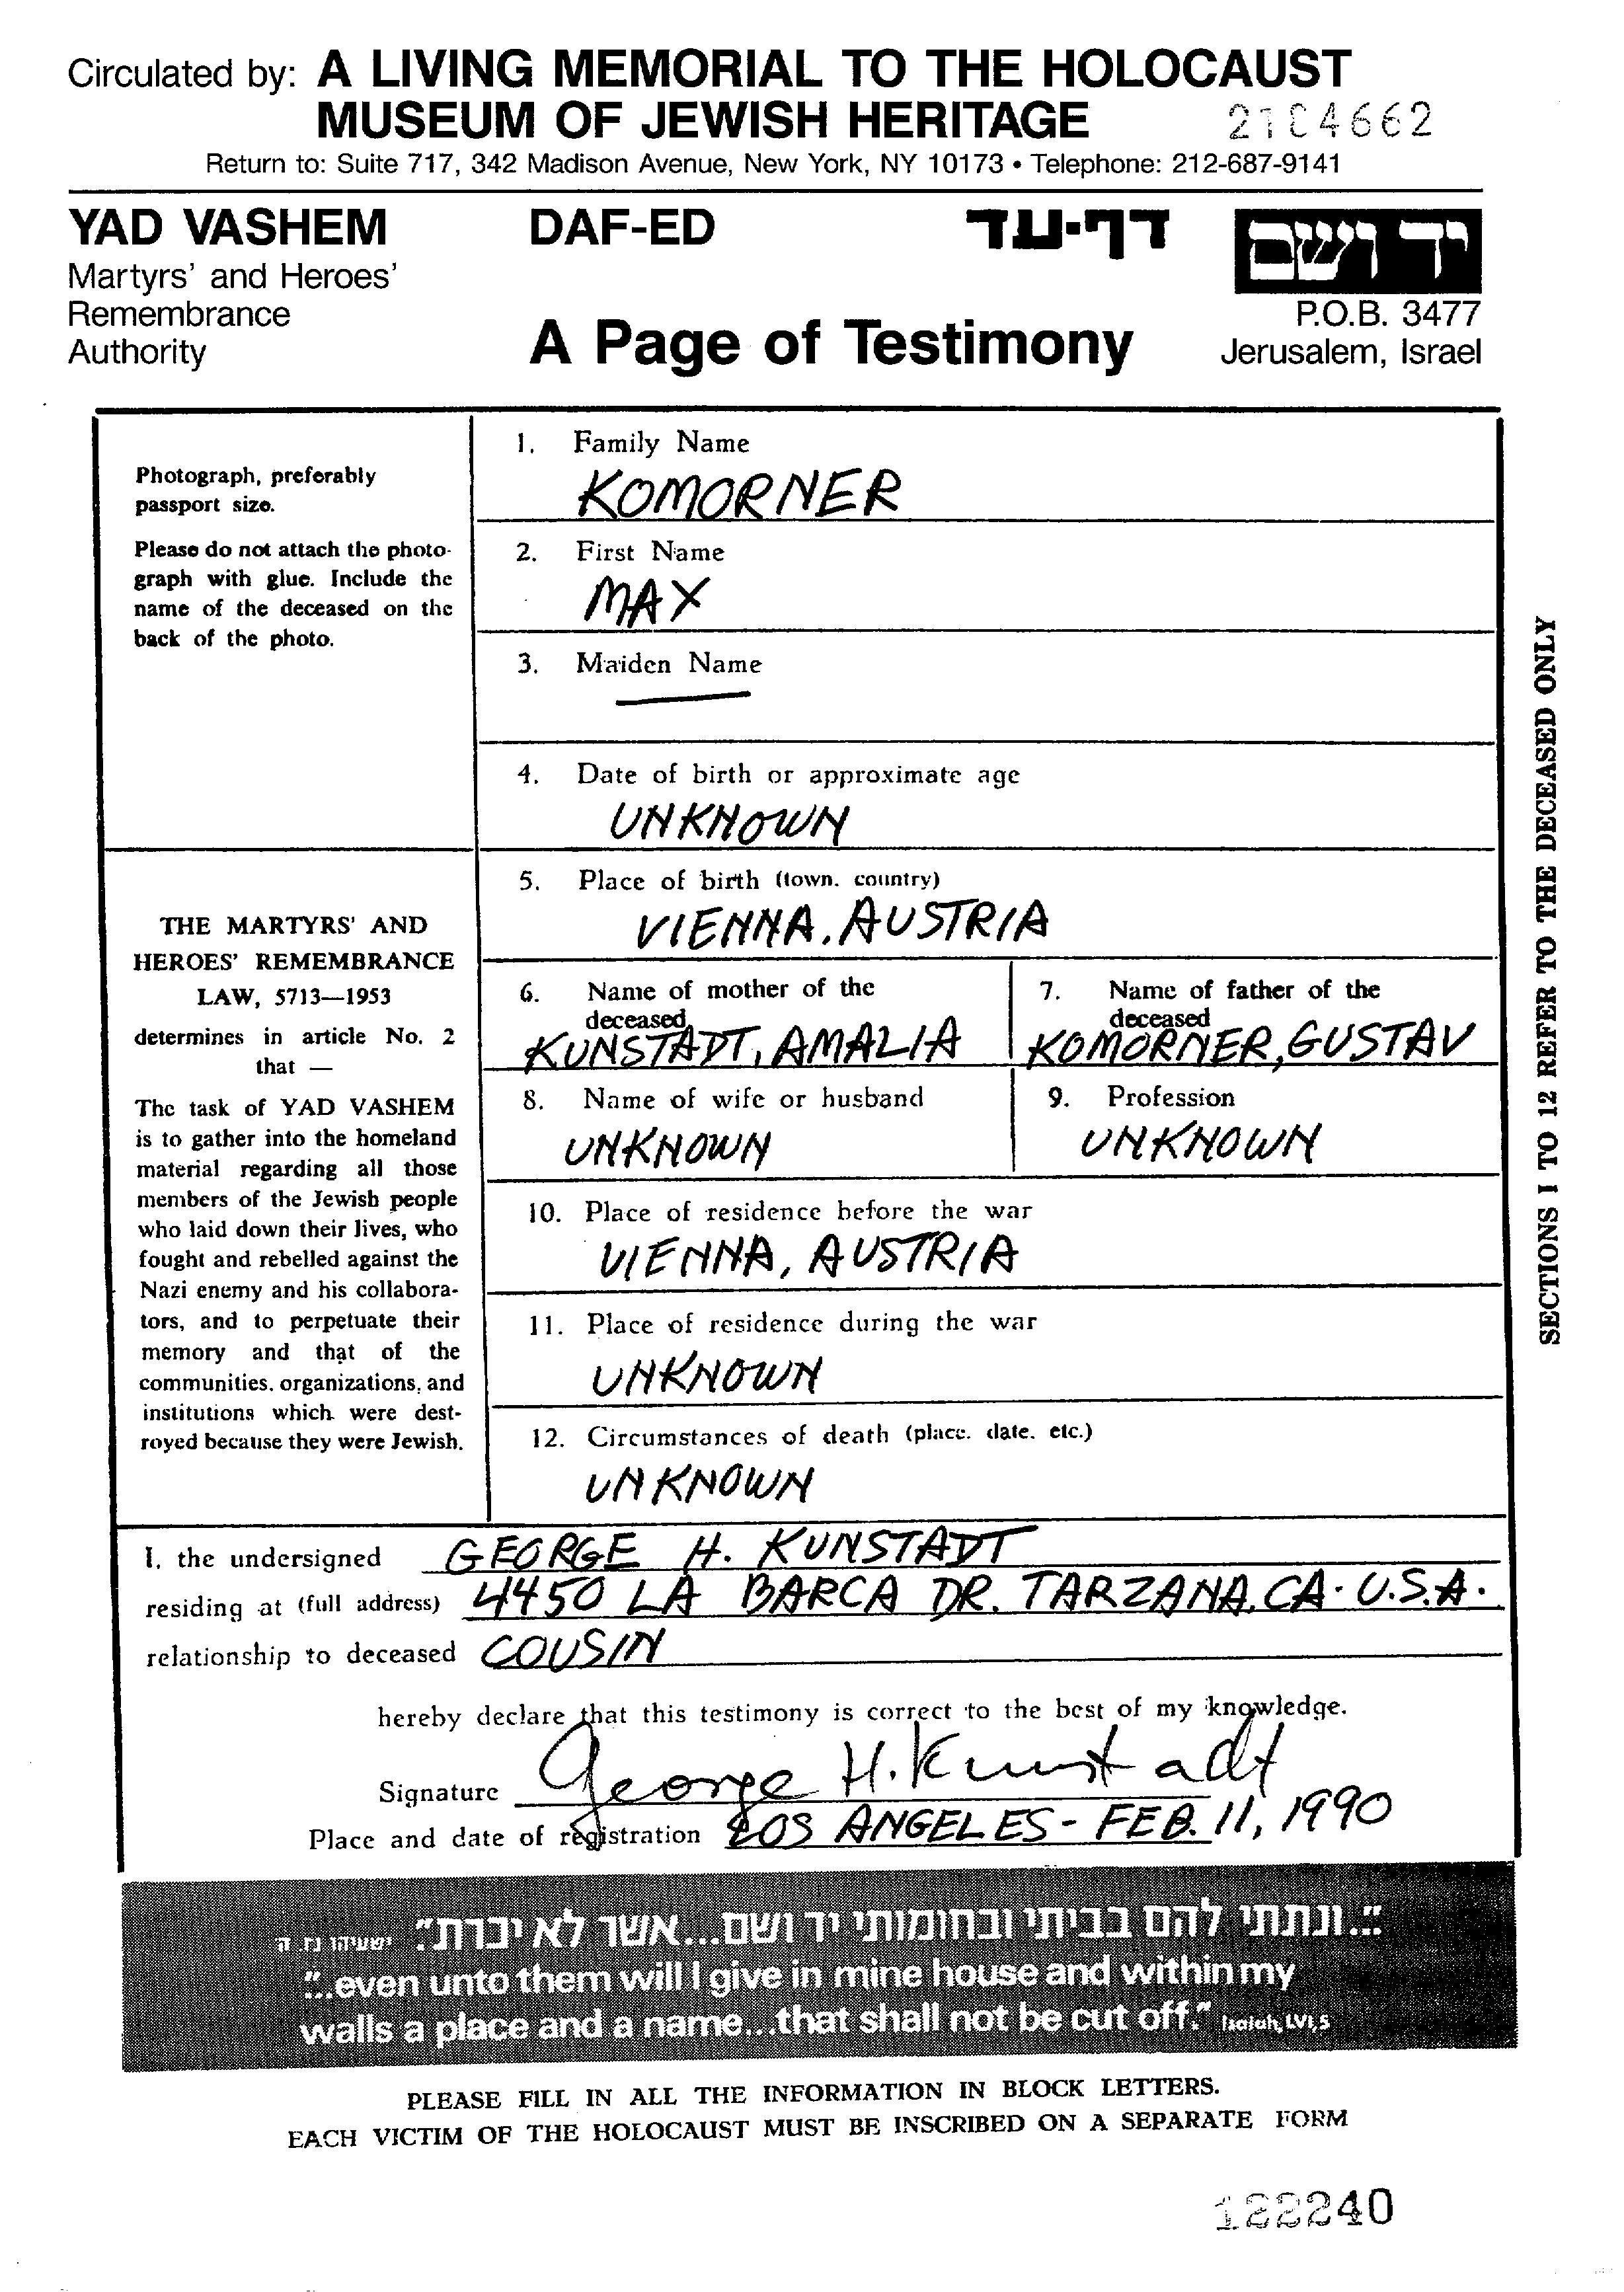 Circulated by: A LIVING MEMORIAL TO THE HOLOCAUST
MUSEUM OF JEWISH HERITAGE
21C4662
Return to: Suite 717, 342 Madison Avenue, New York, NY 10173 • Telephone: 212-687-9141
YAD VASHEM
Martyrs' and Heroes'
Remembrance
Authority
DAF-ED
דף-עד
A Page of Testimony
יד ושם
P.O.B. 3477
Jerusalem, Israel
Photograph, preferably
passport size.
Please do not attach the photo-
graph with glue. Include the
name of the deceased on the
back of the photo.
THE MARTYRS' AND
HEROES' REMEMBRANCE
LAW, 5713—1953
determines in article No. 2
that —
The task of YAD VASHEM
is to gather into the homeland
material regarding all those
members of the Jewish people
who laid down their lives, who
fought and rebelled against the
Nazi enemy and his collabora-
tors, and to perpetuate their
memory and that of the
communities, organizations, and
institutions which were dest-
royed because they were Jewish.
1. Family Name
KOMORNER
2. First Name
MAX
3. Maiden Name
4. Date of birth or approximate age
UNKNOWN
5. Place of birth (town. country)
VIENNA, AUSTRIA
6. Name of mother of the
deceased
KUNSTADT, AMALIA
7. Name of father of the
deceased
KOMORNER, GUSTAV
8. Name of wife or husband
UNKNOWN
9. Profession
UNKNOWN
10. Place of residence before the war
VIENNA, AUSTRIA
11. Place of residence during the war
UNKNOWN
12. Circumstances of death (place. date. etc.)
UNKNOWN
SECTIONS 1 TO 12 REFER TO THE DECEASED ONLY
I, the undersigned GEORGE H. KUNSTADT
residing at (full address) 4450 LA BARCA DR. TARZANA, CA. U.S.A.
relationship to deceased COUSIN
hereby declare that this testimony is correct to the best of my knowledge.
Signature George H. Kunstadt
Place and date of registration LOS ANGELES - FEB. 11, 1990
"...ונתתי להם בביתי ובחומותי יד ושם...אשר לא יכרת." ישעיהו נו ה
"...even unto them will I give in mine house and within my
walls a place and a name...that shall not be cut off." Isaiah, LVI, 5
PLEASE FILL IN ALL THE INFORMATION IN BLOCK LETTERS.
EACH VICTIM OF THE HOLOCAUST MUST BE INSCRIBED ON A SEPARATE FORM
122240